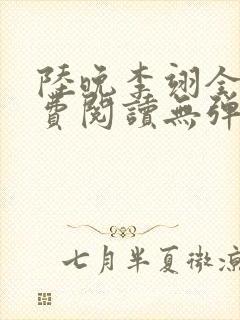 陸晚李翊全
費閱讀無彈
七月半夏微涼